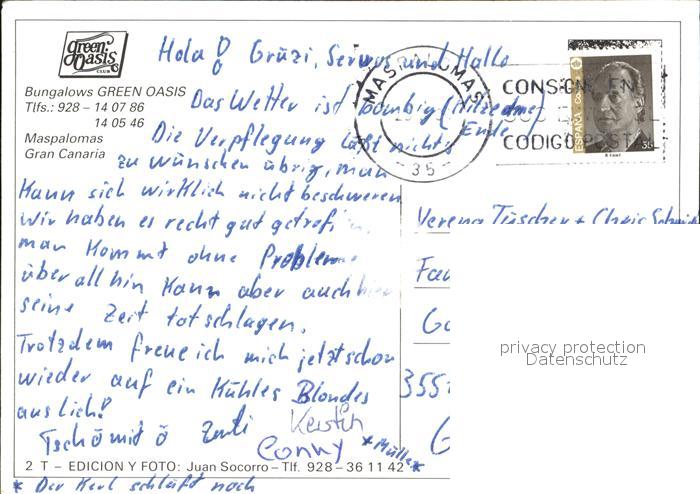 green Oasis CLUB
Bungalows GREEN OASIS
Tlfs.: 928 – 14 07 86
14 05 46
Maspalomas
Gran Canaria
Hola! Grüzi, Servus und Hallo
Das Wetter ist bombig (Hitze ohne Ende)
Die Verpflegung läßt nichts
zu wünschen übrig, man
kann sich wirklich nicht beschweren
wir haben es recht gut
man kommt ohne Probleme
überall hin kann aber auch hier
seine Zeit totschlagen.
Trotzdem freue ich mich jetzt schon
wieder auf ein Kühles Blondes
aus Lich!
Tschö mit ö Kerstin
Conny *Müller*
2 T – EDICION Y FOTO: Juan Socorro – Tlf. 928 – 36 11 42
* Der Kerl schläft noch
MASPALOMAS
– 35 –
CONSIGNE EN
CODIGO POSTAL
ESPAÑA CORREOS
35
Verena Tüscher + Chris
355
G
privacy protection
Datenschutz